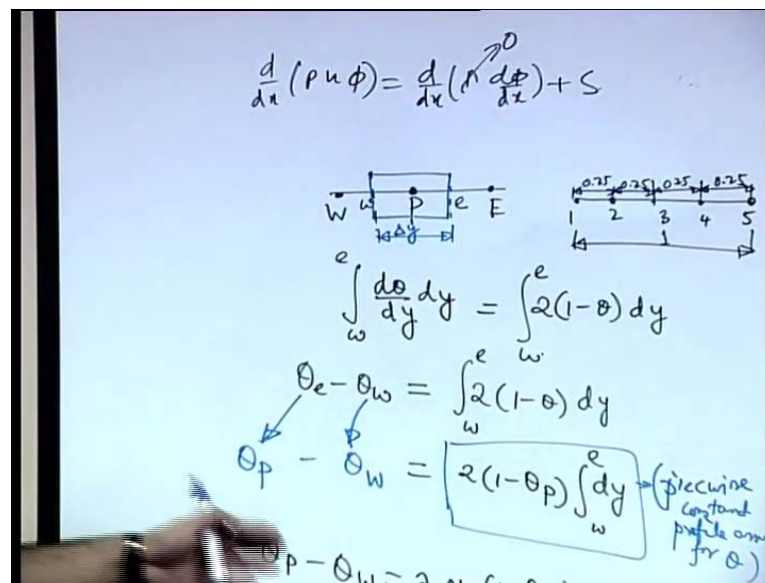 d/dx (ρuφ) = d/dx (Γ dφ/dx) + S
0
W w P e E
Δy
0.25 0.25 0.25 0.25
1 2 3 4 5
1
∫_w^e dθ/dy dy = ∫_w^e 2(1-θ) dy
θe - θw = ∫_w^e 2(1-θ) dy
θP - θW = 2(1-θP) ∫_w^e dy
(piecwise
constant
profile
for θ)
θP - θW = 2